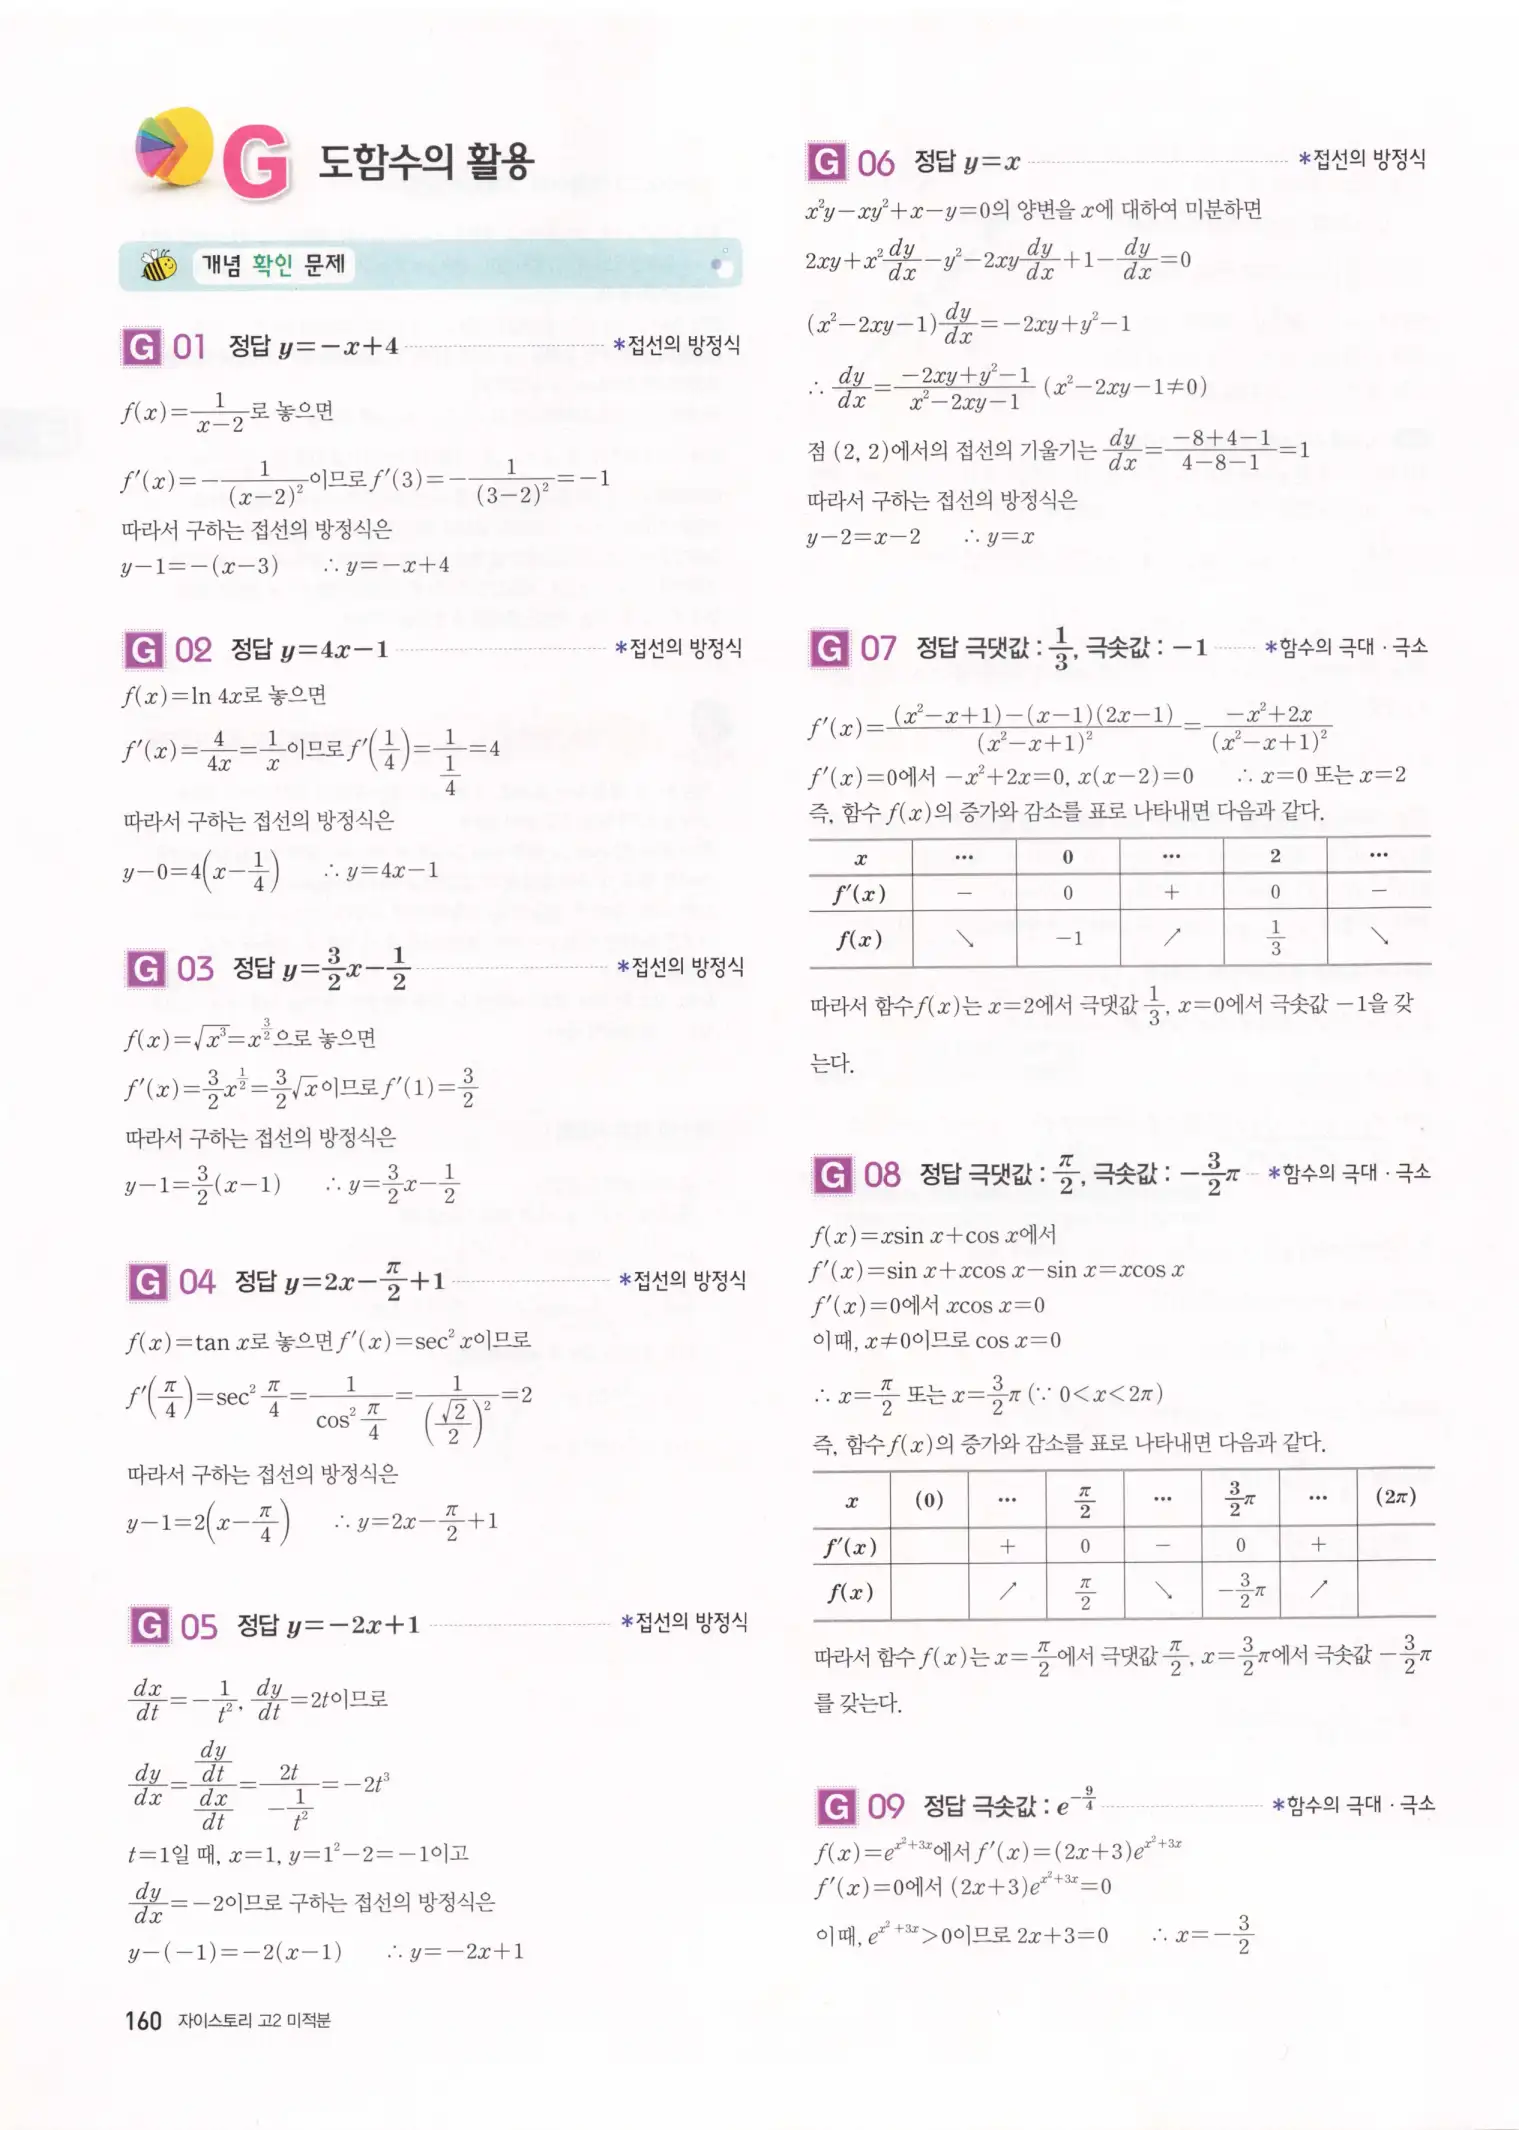 G 도함수의 활용
개념 확인 문제
G 01 정답 y=-x+4 *접선의 방정식
f(x)=1/(x-2)로 놓으면
f'(x)=-1/(x-2)²이므로 f'(3)=-1/(3-2)²=-1
따라서 구하는 접선의 방정식은
y-1=-(x-3) ∴ y=-x+4
G 02 정답 y=4x-1 *접선의 방정식
f(x)=ln 4x로 놓으면
f'(x)=4/(4x)=1/x이므로 f'(1/4)=1/(1/4)=4
따라서 구하는 접선의 방정식은
y-0=4(x-1/4) ∴ y=4x-1
G 03 정답 y=3/2x-1/2 *접선의 방정식
f(x)=√(x³)=x^(3/2)으로 놓으면
f'(x)=3/2x^(1/2)=3/2√x이므로 f'(1)=3/2
따라서 구하는 접선의 방정식은
y-1=3/2(x-1) ∴ y=3/2x-1/2
G 04 정답 y=2x-π/2+1 *접선의 방정식
f(x)=tan x로 놓으면 f'(x)=sec² x이므로
f'(π/4)=sec² π/4=1/(cos² π/4)=1/(√2/2)²=2
따라서 구하는 접선의 방정식은
y-1=2(x-π/4) ∴ y=2x-π/2+1
G 05 정답 y=-2x+1 *접선의 방정식
dx/dt=-1/t², dy/dt=2t이므로
dy/dx=(dy/dt)/(dx/dt)=2t/(-1/t²)=-2t³
t=1일 때, x=1, y=1²-2=-1이고
dy/dx=-2이므로 구하는 접선의 방정식은
y-(-1)=-2(x-1) ∴ y=-2x+1
160 자이스토리 고2 미적분
G 06 정답 y=x *접선의 방정식
x²y-xy²+x-y=0의 양변을 x에 대하여 미분하면
2xy+x²dy/dx-y²-2xydy/dx+1-dy/dx=0
(x²-2xy-1)dy/dx=-2xy+y²-1
∴ dy/dx=(-2xy+y²-1)/(x²-2xy-1) (x²-2xy-1≠0)
점 (2, 2)에서의 접선의 기울기는 dy/dx=(-8+4-1)/(4-8-1)=1
따라서 구하는 접선의 방정식은
y-2=x-2 ∴ y=x
G 07 정답 극댓값 : 1/3, 극솟값 : -1 *함수의 극대 · 극소
f'(x)=((x²-x+1)-(x-1)(2x-1))/(x²-x+1)²=(-x²+2x)/(x²-x+1)²
f'(x)=0에서 -x²+2x=0, x(x-2)=0 ∴ x=0 또는 x=2
즉, 함수 f(x)의 증가와 감소를 표로 나타내면 다음과 같다.
x ⋯ 0 ⋯ 2 ⋯
f'(x) - 0 + 0 -
f(x) ↘ -1 ↗ 1/3 ↘
따라서 함수 f(x)는 x=2에서 극댓값 1/3, x=0에서 극솟값 -1을 갖
는다.
G 08 정답 극댓값 : π/2, 극솟값 : -3/2π *함수의 극대 · 극소
f(x)=xsin x+cos x에서
f'(x)=sin x+xcos x-sin x=xcos x
f'(x)=0에서 xcos x=0
이때, x≠0이므로 cos x=0
∴ x=π/2 또는 x=3/2π (∵ 0<x<2π)
즉, 함수 f(x)의 증가와 감소를 표로 나타내면 다음과 같다.
x (0) ⋯ π/2 ⋯ 3/2π ⋯ (2π)
f'(x) + 0 - 0 +
f(x) ↗ π/2 ↘ -3/2π ↗
따라서 함수 f(x)는 x=π/2에서 극댓값 π/2, x=3/2π에서 극솟값 -3/2π
를 갖는다.
G 09 정답 극솟값 : e^(-9/4) *함수의 극대 · 극소
f(x)=e^(x²+3x)에서 f'(x)=(2x+3)e^(x²+3x)
f'(x)=0에서 (2x+3)e^(x²+3x)=0
이때, e^(x²+3x)>0이므로 2x+3=0 ∴ x=-3/2